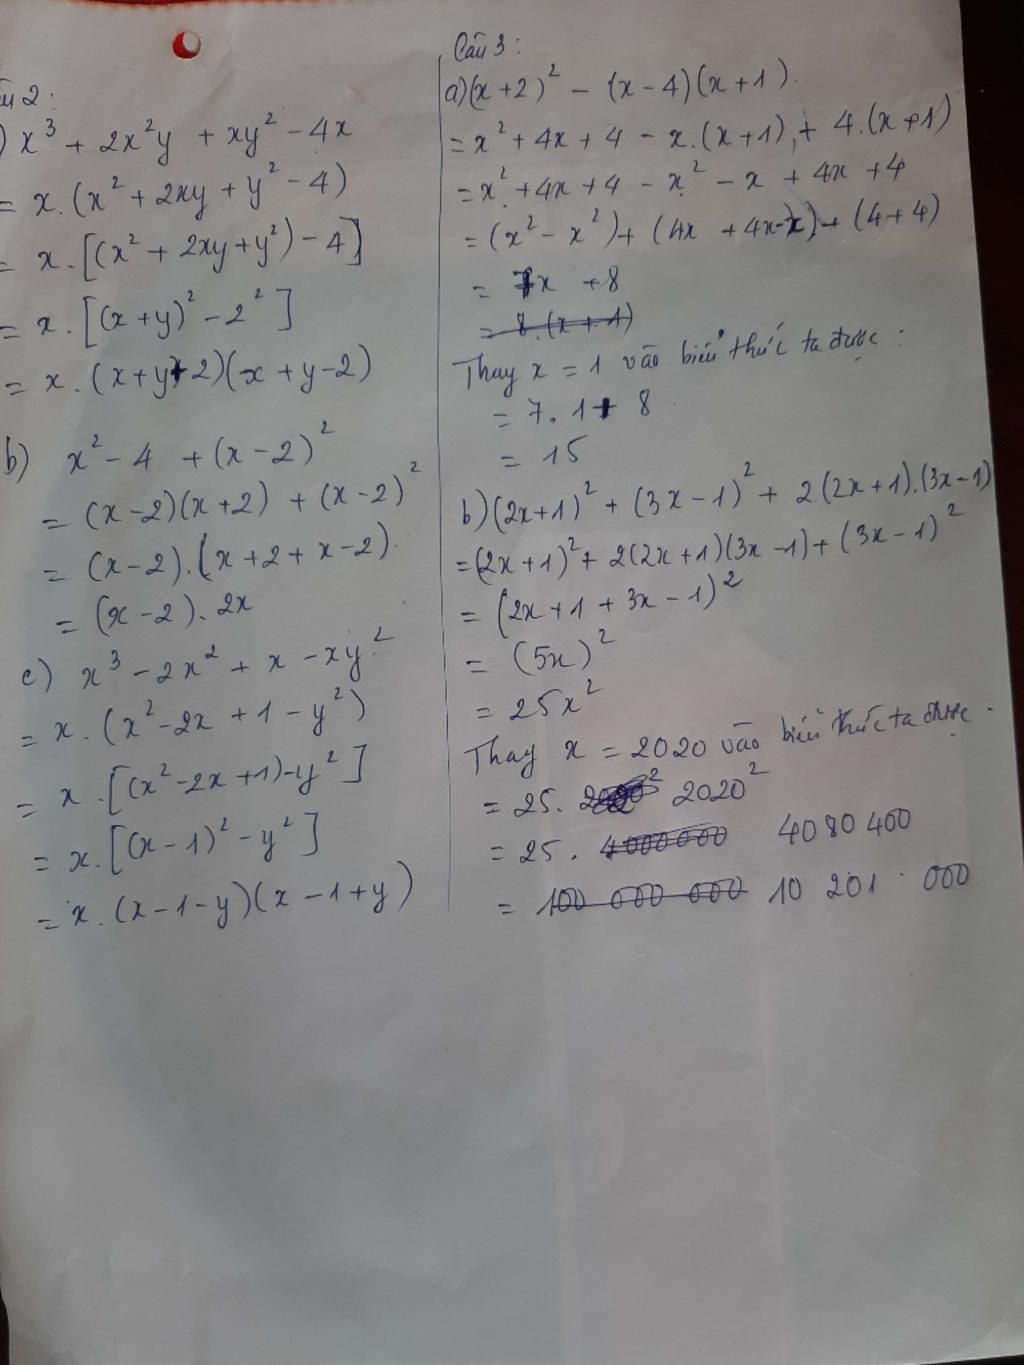 2:
) x³ + 2x²y + xy² - 4x
= x.(x² + 2xy + y² - 4)
= x.[(x² + 2xy + y²) - 4]
= x.[(x+y)² - 2²]
= x.(x+y+2)(x+y-2)
b) x² - 4 + (x-2)²
= (x-2)(x+2) + (x-2)²
= (x-2).(x+2+x-2).
= (x-2).2x
c) x³ - 2x² + x - xy²
= x.(x² - 2x + 1 - y²)
= x.[(x² - 2x + 1) - y²]
= x.[(x-1)² - y²]
= x.(x-1-y)(x-1+y)
Câu 3:
a) (x+2)² - (x-4)(x+1).
= x² + 4x + 4 - x.(x+1) + 4.(x+1)
= x² + 4x + 4 - x² - x + 4x + 4
= (x² - x²) + (4x + 4x - x) + (4+4)
= 7x + 8
= 8.(x+1)
Thay x = 1 vào biểu thức ta được:
= 7.1 + 8
= 15
b) (2x+1)² + (3x-1)² + 2.(2x+1).(3x-1)
= (2x+1)² + 2(2x+1)(3x-1) + (3x-1)²
= (2x+1+3x-1)²
= (5x)²
= 25x²
Thay x = 2020 vào biểu thức ta được.
= 25. 2020²
= 25. 4000000 4080400
= 100 000 000 10 201 000